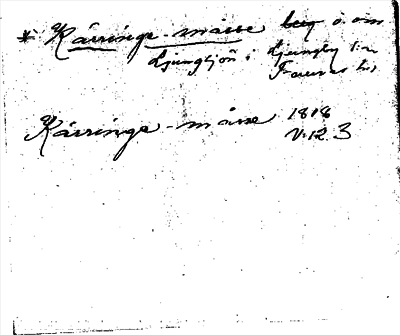 * Kärringe-måsse beg ö. om
Ljungsjön i Ljungby sn
Faurås hd
Kärringe-måsse 1818
V.12.3